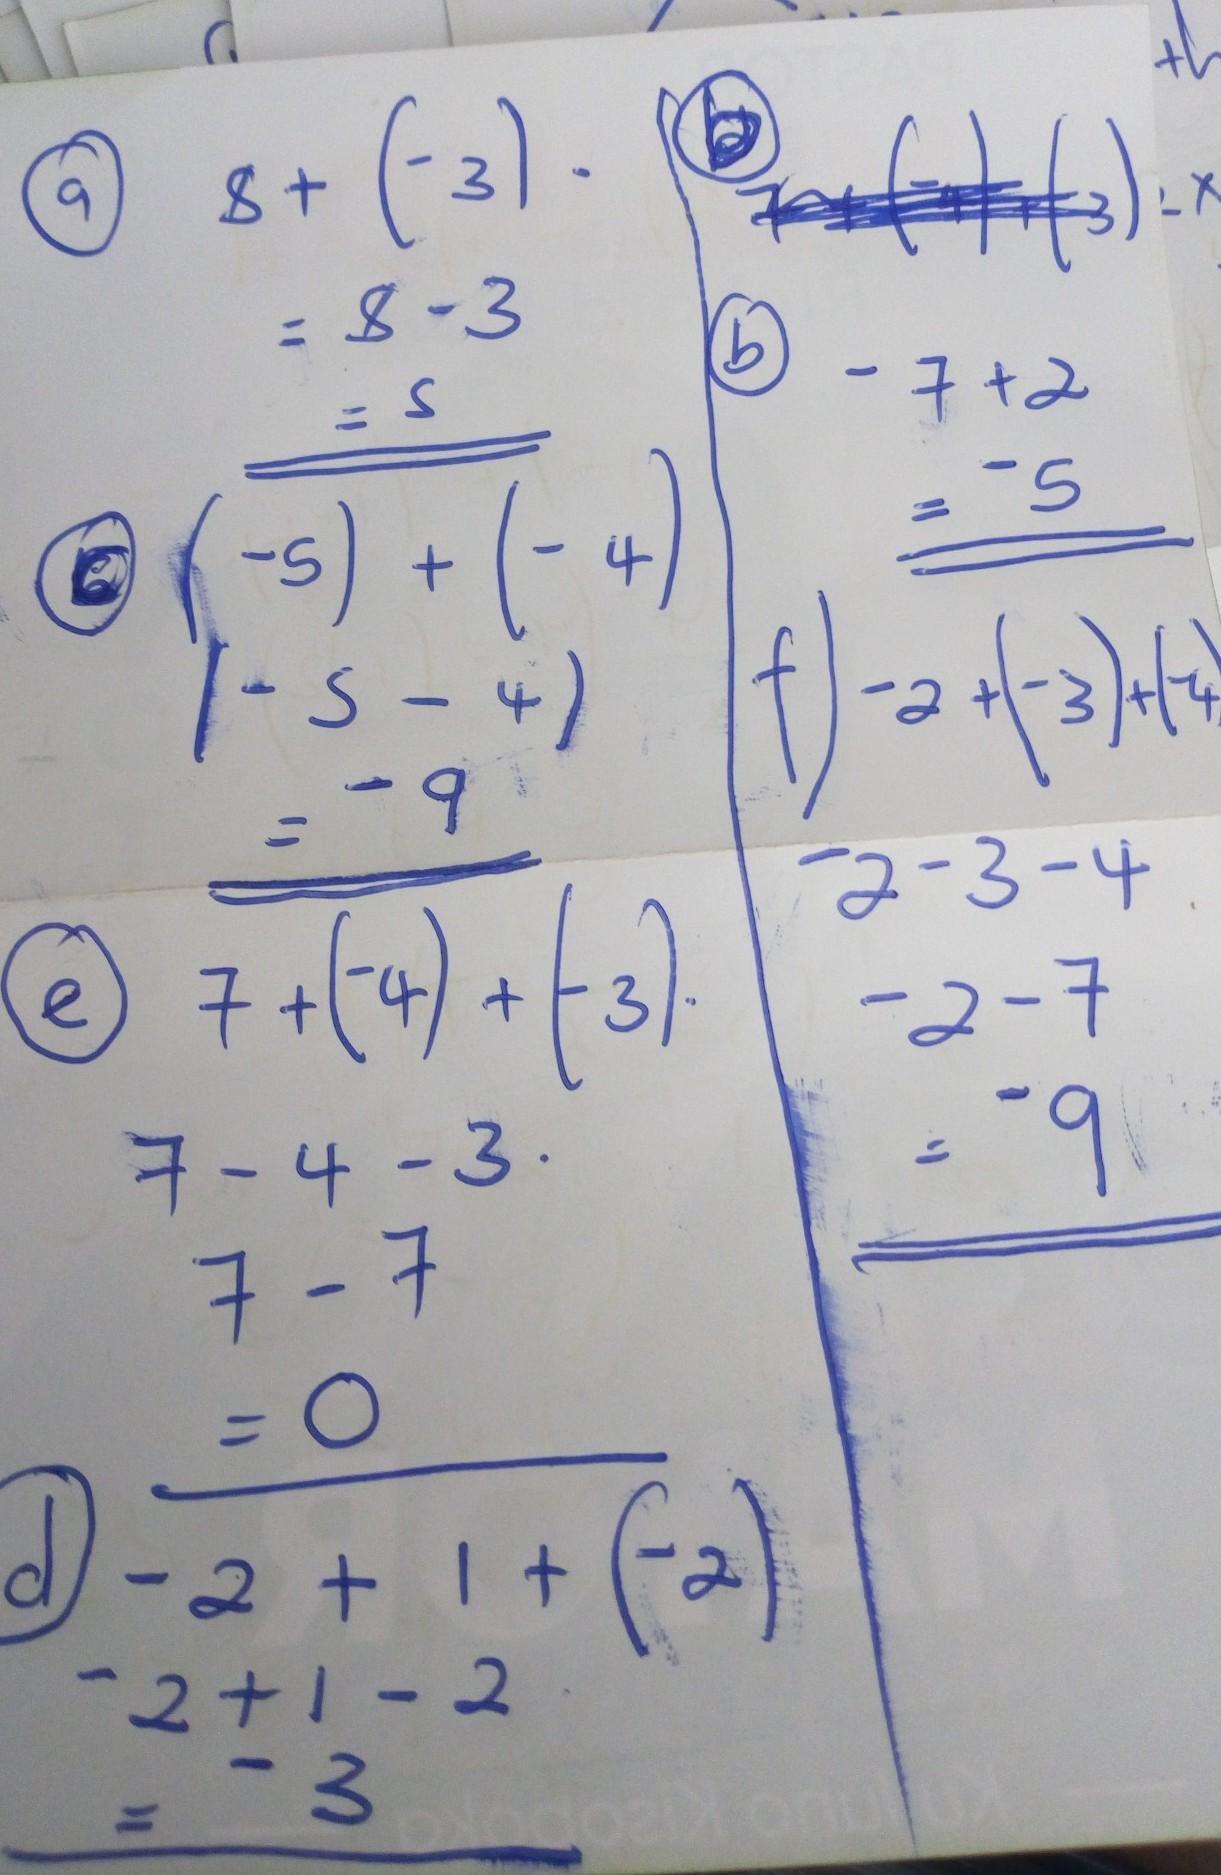 a 8 + (-3).
= 8 - 3
= 5
c (-5) + (- 4)
(- 5 - 4)
= - 9
e 7 + (-4) + (-3).
7 - 4 - 3.
7 - 7
= 0
d - 2 + 1 + (-2)
-2 + 1 - 2
= - 3
b
b - 7 + 2
= - 5
f) -2 + (-3) + (-4)
-2 - 3 - 4
- 2 - 7
= - 9